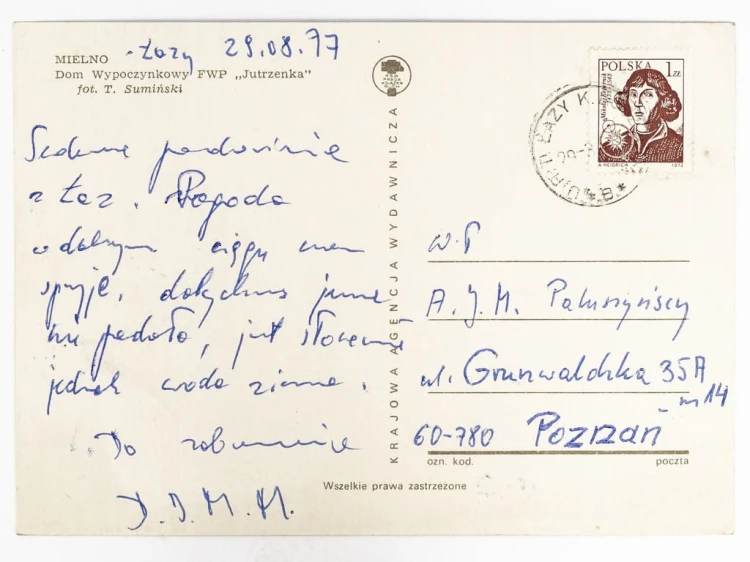 MIELNO
Dom Wypoczynkowy FWP „Jutrzenka"
fot. T. Sumiński
Łazy 29.08.77
Serdeczne pozdrowienia
z Łaz. Pogoda
w dalszym ciągu nam
sprzyja, dotychczas jeszcze
nie padało, jest słonecznie
jednak woda zimna.
Do zobaczenia
D.J.M.M.
KRAJOWA AGENCJA WYDAWNICZA
POLSKA 1 ZŁ
A. HEIDRICH 1972
ŁAZY K.
W.P
A. J. M. Paluszyńscy
ul. Grunwaldzka 35A
m 14
60-780 Poznań
ozn. kod. poczta
Wszelkie prawa zastrzeżone